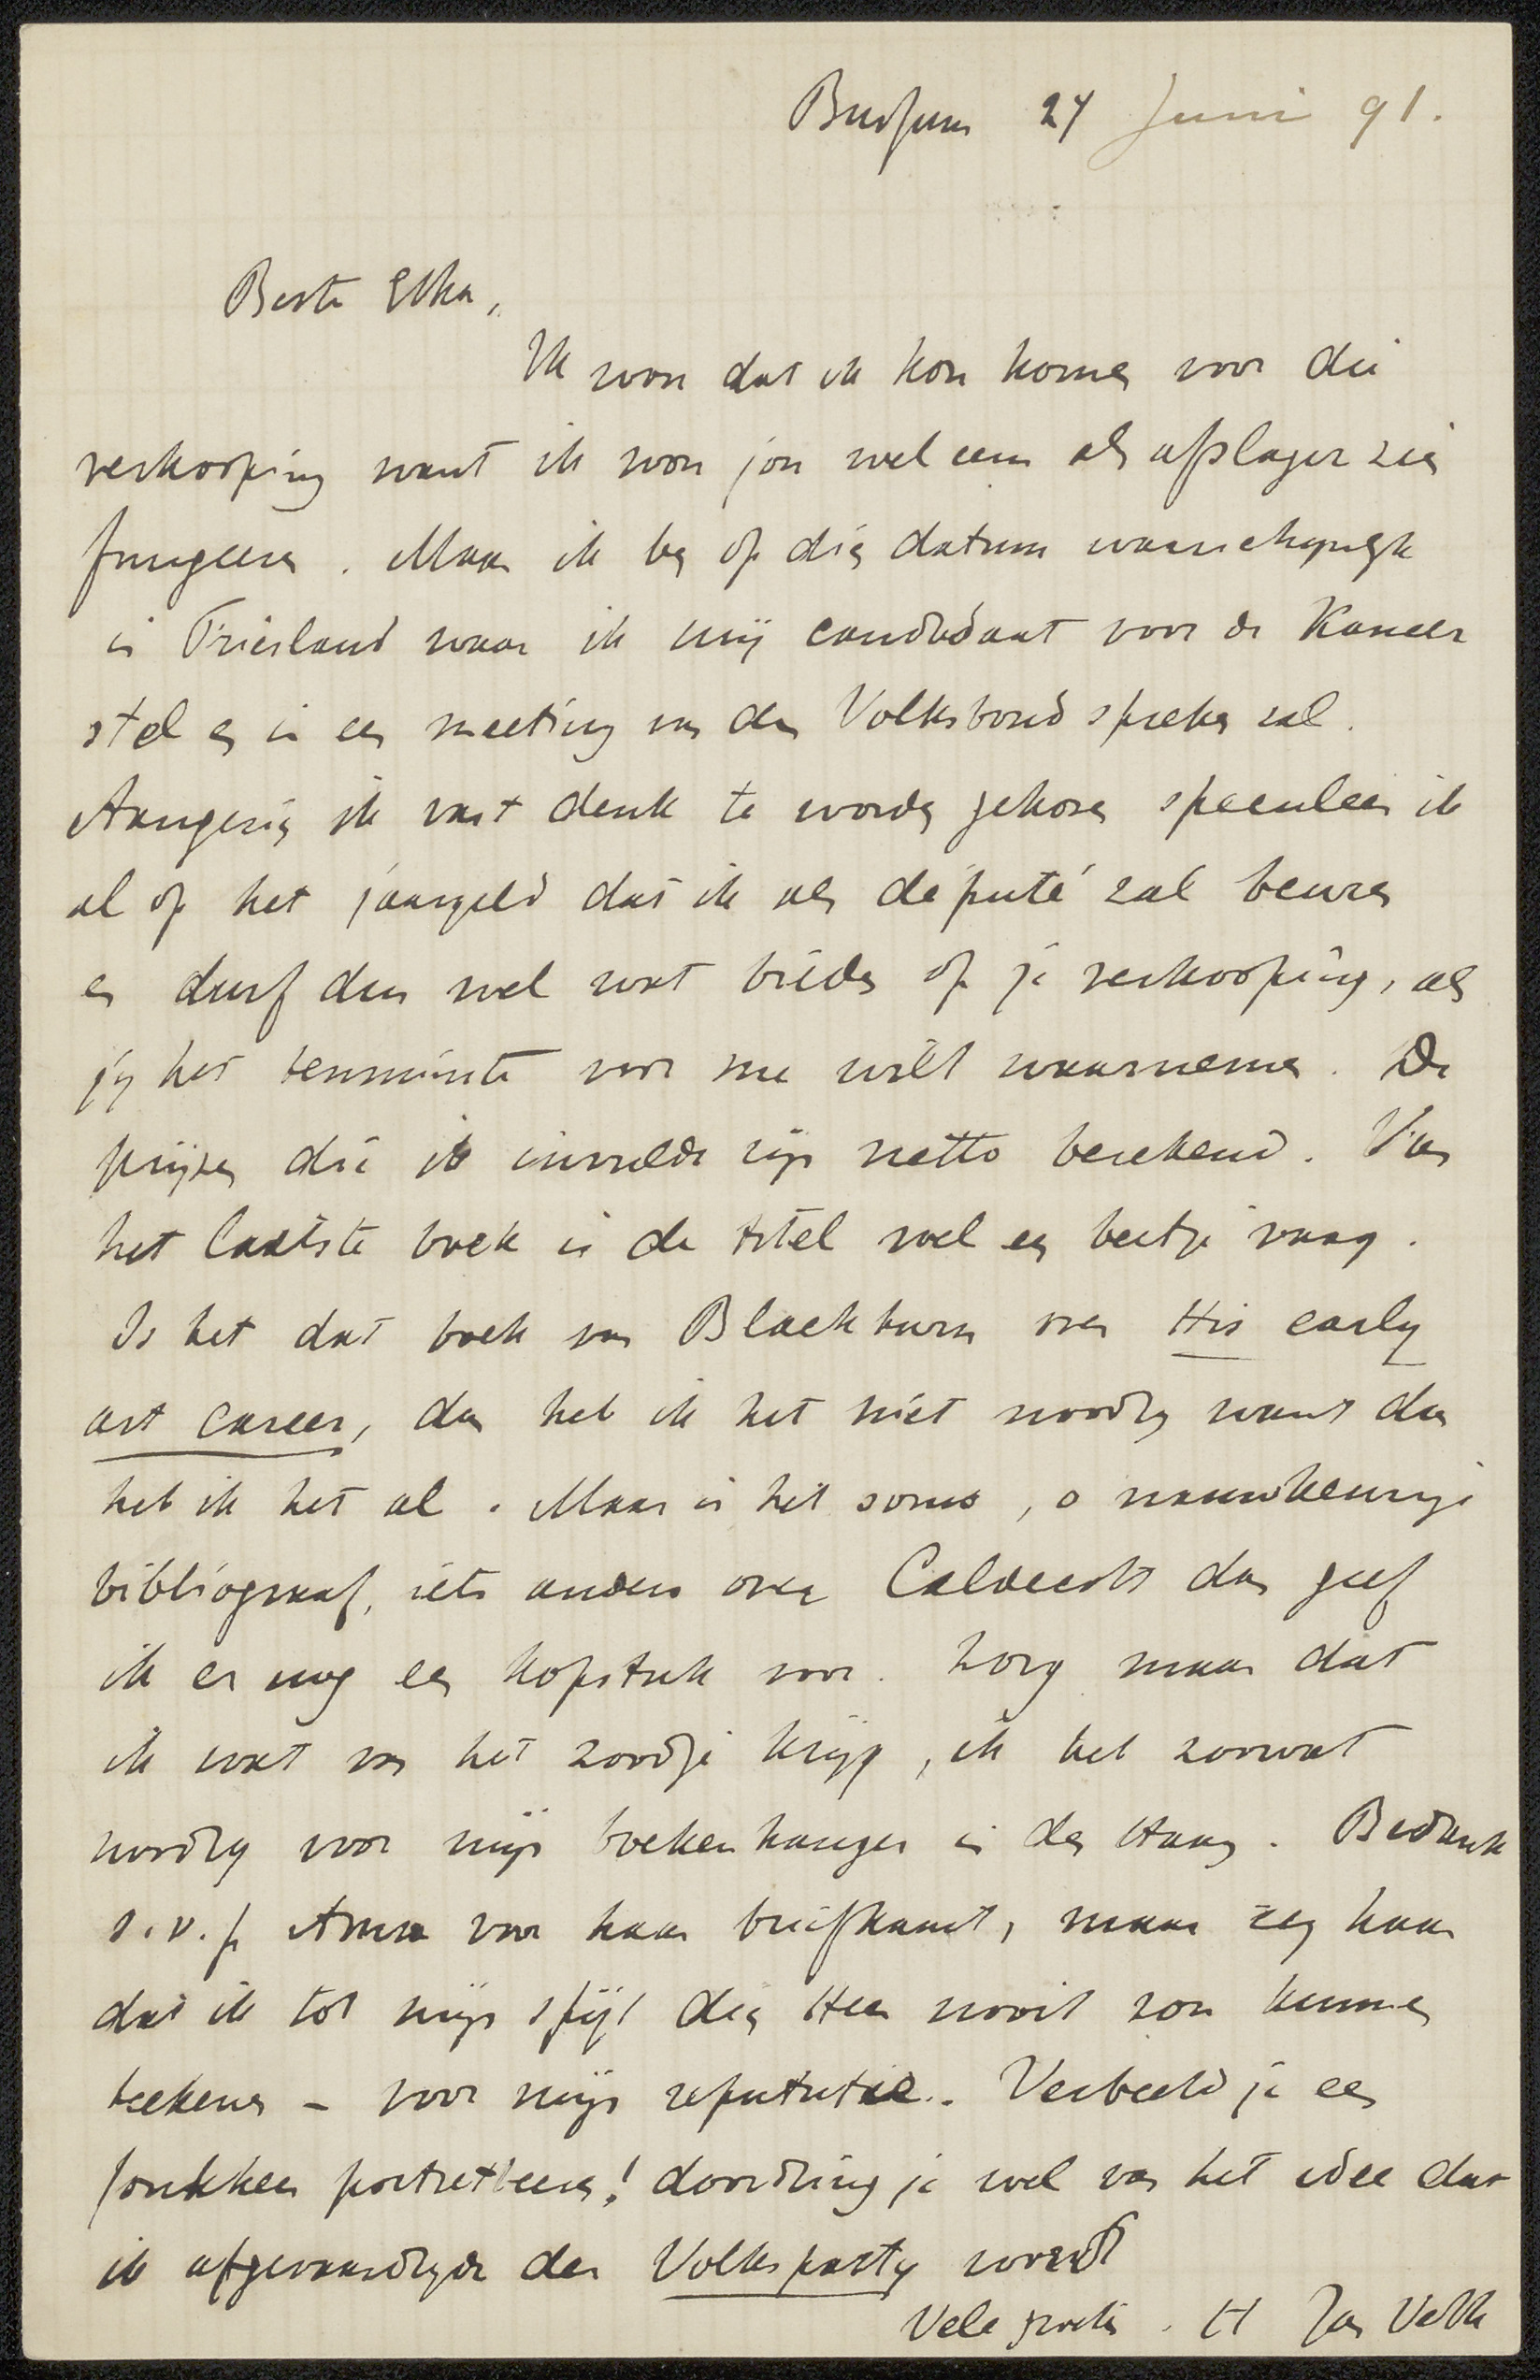 Bussum 24 Juni 91.
Beste Etha,
Ik wou dat ik kon komen voor die
verkooping want ik wou jou wel eens als afslager zien
fungeeren. Maar ik ben op dien datum waarschijnlijk
in Friesland waar ik mij candidaat voor de Kamer
stel en in een meeting van den Volksbond spreken zal.
Aangezien ik vast denk te worden gekozen speculeer ik
al op het jaargeld dat ik als député zal beuren
en durf dus wel wat bieden op je verkooping, als
jij het tenminste voor me wilt waarnemen. De
prijzen die ik invulde zijn netto berekend. Van
het laatste boek is de titel wel een beetje vaag.
Is het dat boek van Blackburn over His early
art career, dan heb ik het niet noodig want dan
heb ik het al. Maar is het soms, o nauwkeurige
bibliograaf, iets anders over Caldecott dan geef
ik er nog een kopstuk voor. Zorg maar dat
ik wat van het zoodje krijg, ik heb zoowat
noodig voor mijn boekenhanger in den Haag. Bedank
s.v.p Anna voor haar briefkaart, maar zeg haar
dat ik tot mijn spijt dien Heer nooit zou kunnen
teekenen - voor mijn reputatie. Verbeeld je een
Jonkheer portretteeren! doordring je wel van het idee dat
ik afgevaardigde der Volksparty wordt
Vele groeten. tt Jan Veth